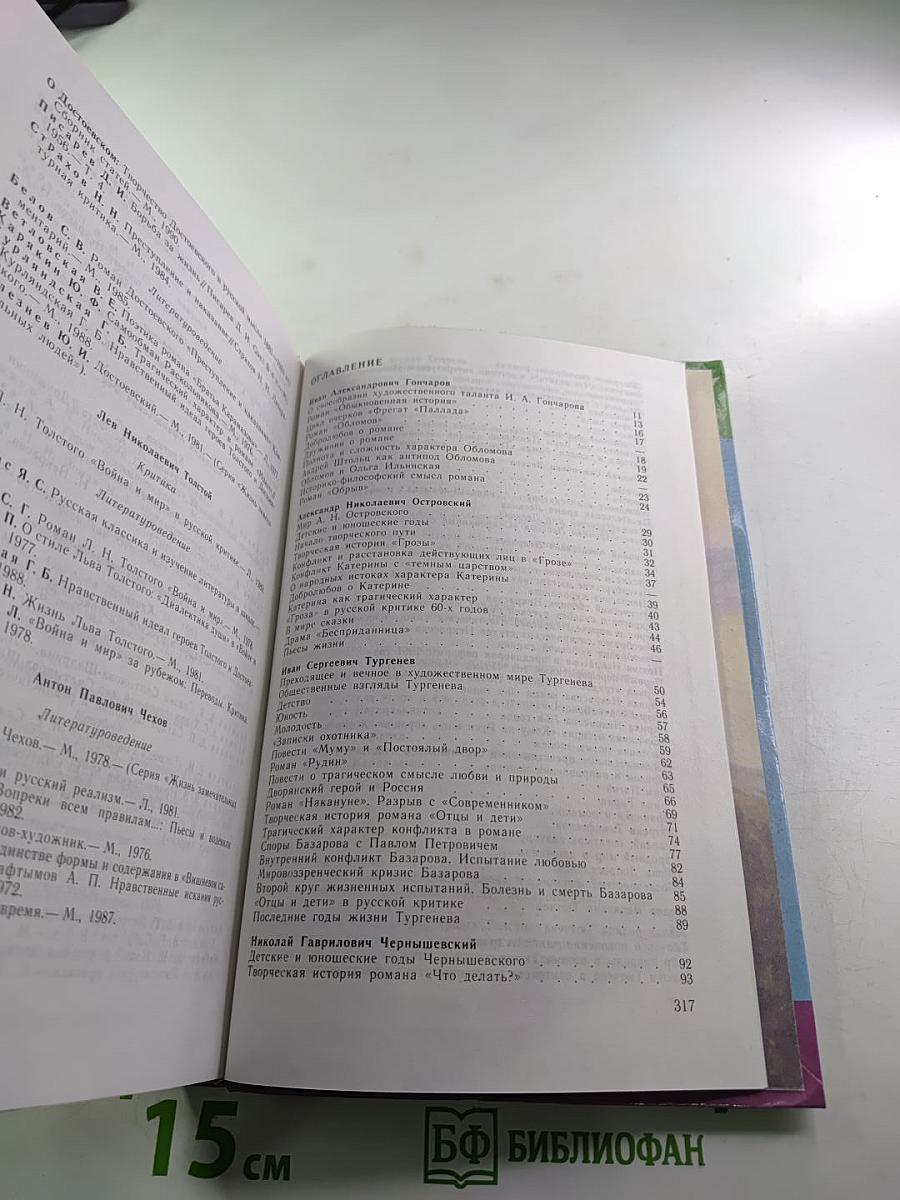 О Достоевском: Творчество Достоевского и русская
Сборник статей.— М., 1990.
Писарев Д. И. Борьба за жизнь//Писарев Д. И. Соч.: В 4 т.
1956.— Т. 4.
Страхов Н. Н. Преступление и наказание//Страхов Н. Н.
турная критика.— М., 1984.
Литературоведение
Белов С. В. Роман Достоевского «Преступление и наказание».
ментарий.— М., 1985.
Ветловская В. Е. Поэтика романа «Братья Карамазовы».
Карякин Ю. Ф. Самообман Раскольникова.— М., 1976.
Курляндская Г. Б. Нравственный идеал героев Толстого
ского.— М., 1988.
лезнев Ю. И. Достоевский.— М., 1981.— (Серия «Жизнь
льных людей»).
Лев Николаевич Толстой
Критика
Л. Н. Толстого «Война и мир» в русской критике.— Л., 1989.
Литературоведение
с Я. С. Русская классика и изучение литературы в школе.—
С. Г. Роман Л. Н. Толстого «Война и мир».— М., 1978.
П. О стиле Льва Толстого: «Диалектика души» в «Войне и
1977.
ая Г. Б. Нравственный идеал героев Толстого и Достоев-
1988.
Н. Жизнь Льва Толстого.— М., 1981.
Л. «Война и мир» за рубежом: Переводы. Критика.
1978.
Антон Павлович Чехов
Литературоведение
Чехов.— М., 1978.— (Серия «Жизнь замечательных
и русский реализм.— Л., 1981.
Вопреки всем правилам...: Пьесы и водевили
982.
ов-художник.— М., 1976.
единстве формы и содержания в «Вишневом са-
афтымов А. П. Нравственные искания рус-
972.
время.— М., 1987.
ОГЛАВЛЕНИЕ
Иван Александрович Гончаров
О своеобразии художественного таланта И. А. Гончарова
Роман «Обыкновенная история» . . . 11
Цикл очерков «Фрегат «Паллада» . . . 13
Роман «Обломов» . . . 16
Добролюбов о романе . . . 17
Дружинин о романе . . . —
Полнота и сложность характера Обломова . . . 18
Андрей Штольц как антипод Обломова . . . 19
Обломов и Ольга Ильинская . . . 22
Историко-философский смысл романа . . . —
Роман «Обрыв» . . . 23
24
Александр Николаевич Островский
Мир А. Н. Островского . . . 29
Детские и юношеские годы . . . 30
Начало творческого пути . . . 31
Творческая история «Грозы» . . . 32
Конфликт и расстановка действующих лиц в «Грозе» . . . 34
Конфликт Катерины с «темным царством» . . . 37
О народных истоках характера Катерины . . . —
Добролюбов о Катерине . . . 39
Катерина как трагический характер . . . 40
«Гроза» в русской критике 60-х годов . . . 43
В мире сказки . . . 44
Драма «Бесприданница» . . . 46
Пьесы жизни . . . —
Иван Сергеевич Тургенев
Преходящее и вечное в художественном мире Тургенева . . . 50
Общественные взгляды Тургенева . . . 54
Детство . . . 56
Юность . . . 57
Молодость . . . 58
«Записки охотника» . . . 59
Повести «Муму» и «Постоялый двор» . . . 62
Роман «Рудин» . . . 63
Повести о трагическом смысле любви и природы . . . 65
Дворянский герой и Россия . . . 66
Роман «Накануне». Разрыв с «Современником» . . . 69
Творческая история романа «Отцы и дети» . . . 71
Трагический характер конфликта в романе . . . 74
Споры Базарова с Павлом Петровичем . . . 77
Внутренний конфликт Базарова. Испытание любовью . . . 82
Мировоззренческий кризис Базарова . . . 84
Второй круг жизненных испытаний. Болезнь и смерть Базарова 85
«Отцы и дети» в русской критике . . . 88
Последние годы жизни Тургенева . . . 89
Николай Гаврилович Чернышевский
Детские и юношеские годы Чернышевского . . . 92
Творческая история романа «Что делать?» . . . 93
317
15 см
БФ БИБЛИОФАН